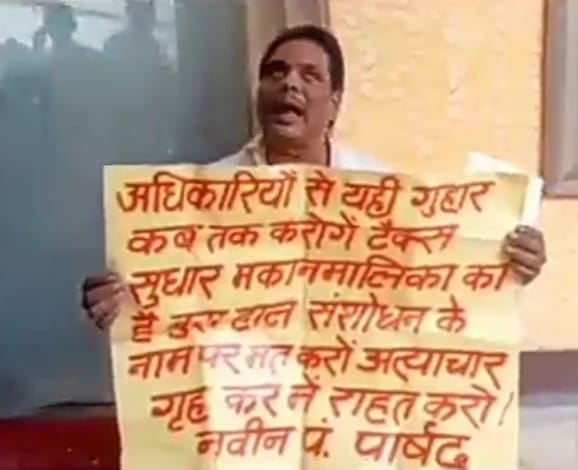 अधिकारियों से यही गुहार
कब तक करोगें टैक्स
सुधार मकानमालिका का
है संशोधन के
नाम पर मत करों अत्याचार
गृह कर में राहत करो!
नवीन पं. पार्षद